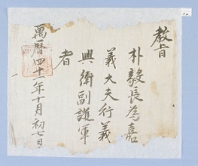 教旨
朴毅長為嘉
義大夫行義
興衛副護軍
者
萬曆四十二年十月初七日